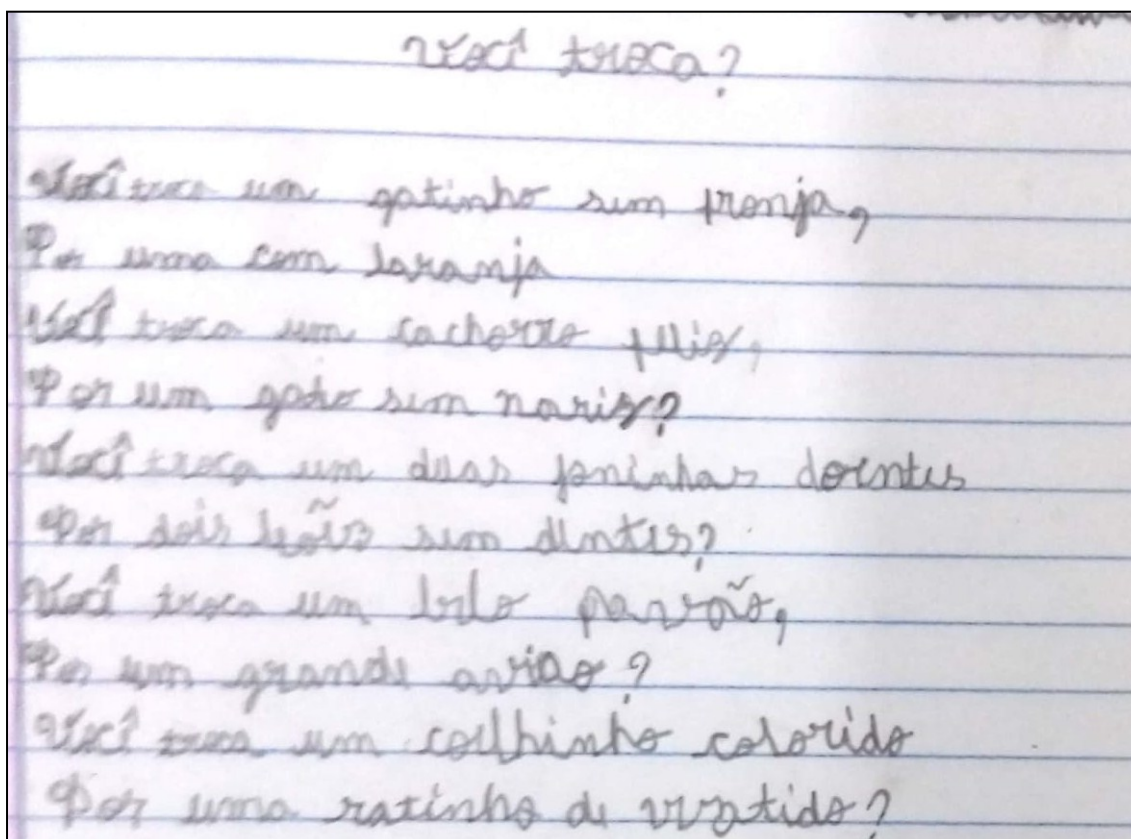 Você troca?
Você troca um gatinho sem franja,
Por uma com laranja
Você troca um cachorro feliz,
Por um gato sem nariz?
Você troca um duas joninhas doentes
Por dois leões sem dentes?
Você troca um belo pavão,
Por um grande aviao?
Você troca um coelhinho colorido
Por uma ratinha de vestido?